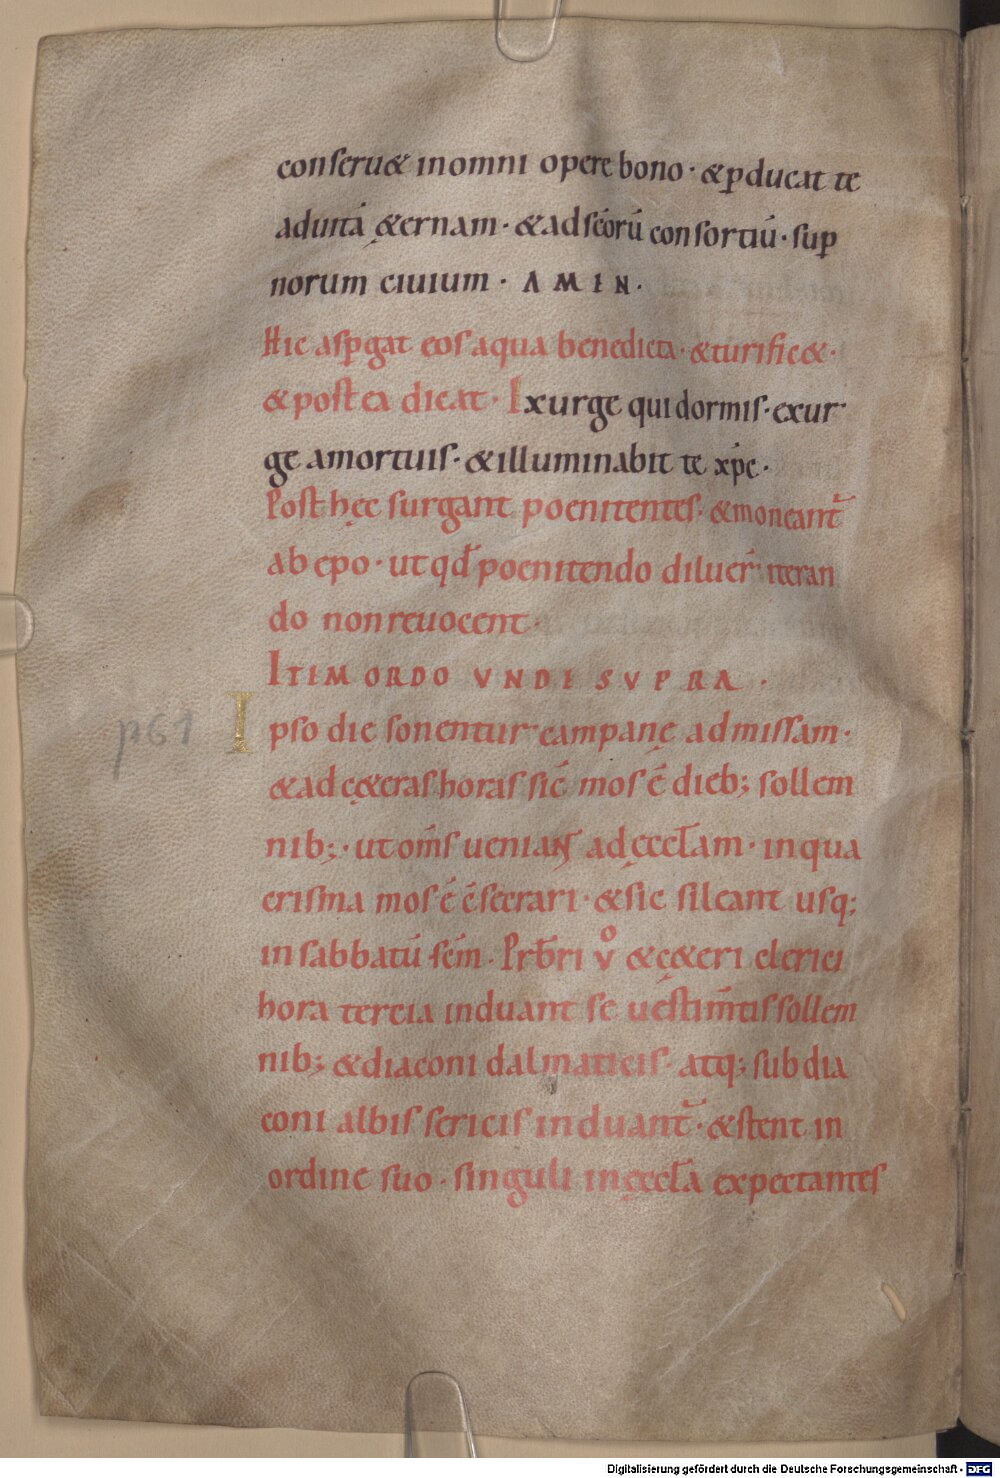 conseru& in omni opere bono · & p̱ducat te
aduitā &ernam · & ad sc̄orū consortiū · sup
norum ciuium · AMEN ·
Hic asp̱gat eos aqua benedicta · & turific& ·
& postea dicat · Exurge qui dormis · exur
ge amortuis · & illuminabit te xp̄c ·
Post hęc surgant poenitentes · & moneant᷑
ab ep̄o · ut qd̄ poenitendo diluer̄ iteran
do non reuocent ·
ITEM ORDO VNDE SVPRA ·
p61
Ipso die sonentur campanę admissam ·
& ad cę&eras horas sic̄ mos ē dieb; sollem
nib; · ut om̄s ueniant adęccl̄am · in qua
crisma mos ē c̄secrari · & sic sileant usq;
in sabbatū sc̄m · Prb̄ri vͦ & cę&eri clerici
hora tercia induant se uestim̄tis sollem
nib; & diaconi dalmaticis · atq; subdia
coni albis sericis induant᷑ · & stent in
ordine suo · singuli inęccl̄a expectantes
Digitalisierung gefördert durch die Deutsche Forschungsgemeinschaft - DFG